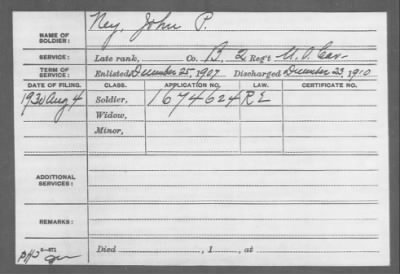 NAME OF SOLDIER: Ney, John P.
SERVICE: Late rank, Co. B, 2 Reg't U.S. Cav-
TERM OF SERVICE: Enlisted December 25, 1907 Discharged December 23, 1910
DATE OF FILING. CLASS. APPLICATION NO. LAW. CERTIFICATE NO.
1930 Aug 4 Soldier, 1674624 RE
Widow,
Minor,
ADDITIONAL SERVICES:
REMARKS:
Died , 1 , at